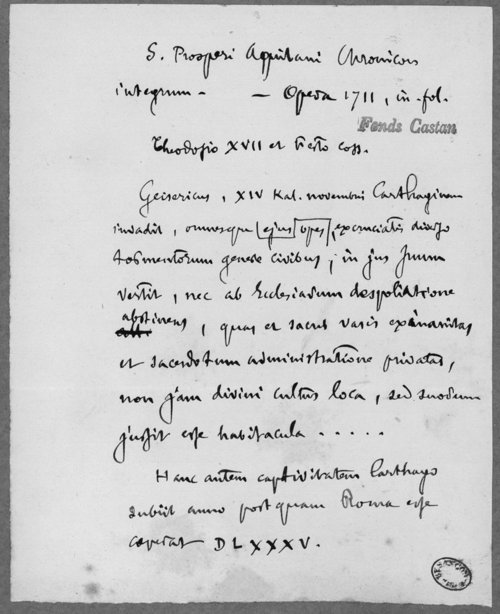 S. Prosperi Aquitani Chronicon
integrum. — — Opera 1711, in-fol.
Fonds Castan
Theodosio XVII et Festo coss.
Geisericus, XIV Kal. novembris Carthaginem
invadit, omnesque ejus opes, excruciatis diverso
tormentorum genere civibus, in jus suum
vertit, nec ab Ecclesiarum despoliatione
abstinens, quas et sacris vasis exinanitas
et sacerdotum administratione privatas,
non jam divini cultus loca, sed suorum
jussit esse habitacula . . . . .
Hanc autem captivitatem Carthago
subiit anno postquam Romana esse
coeperat DLXXXV.
BESANÇON